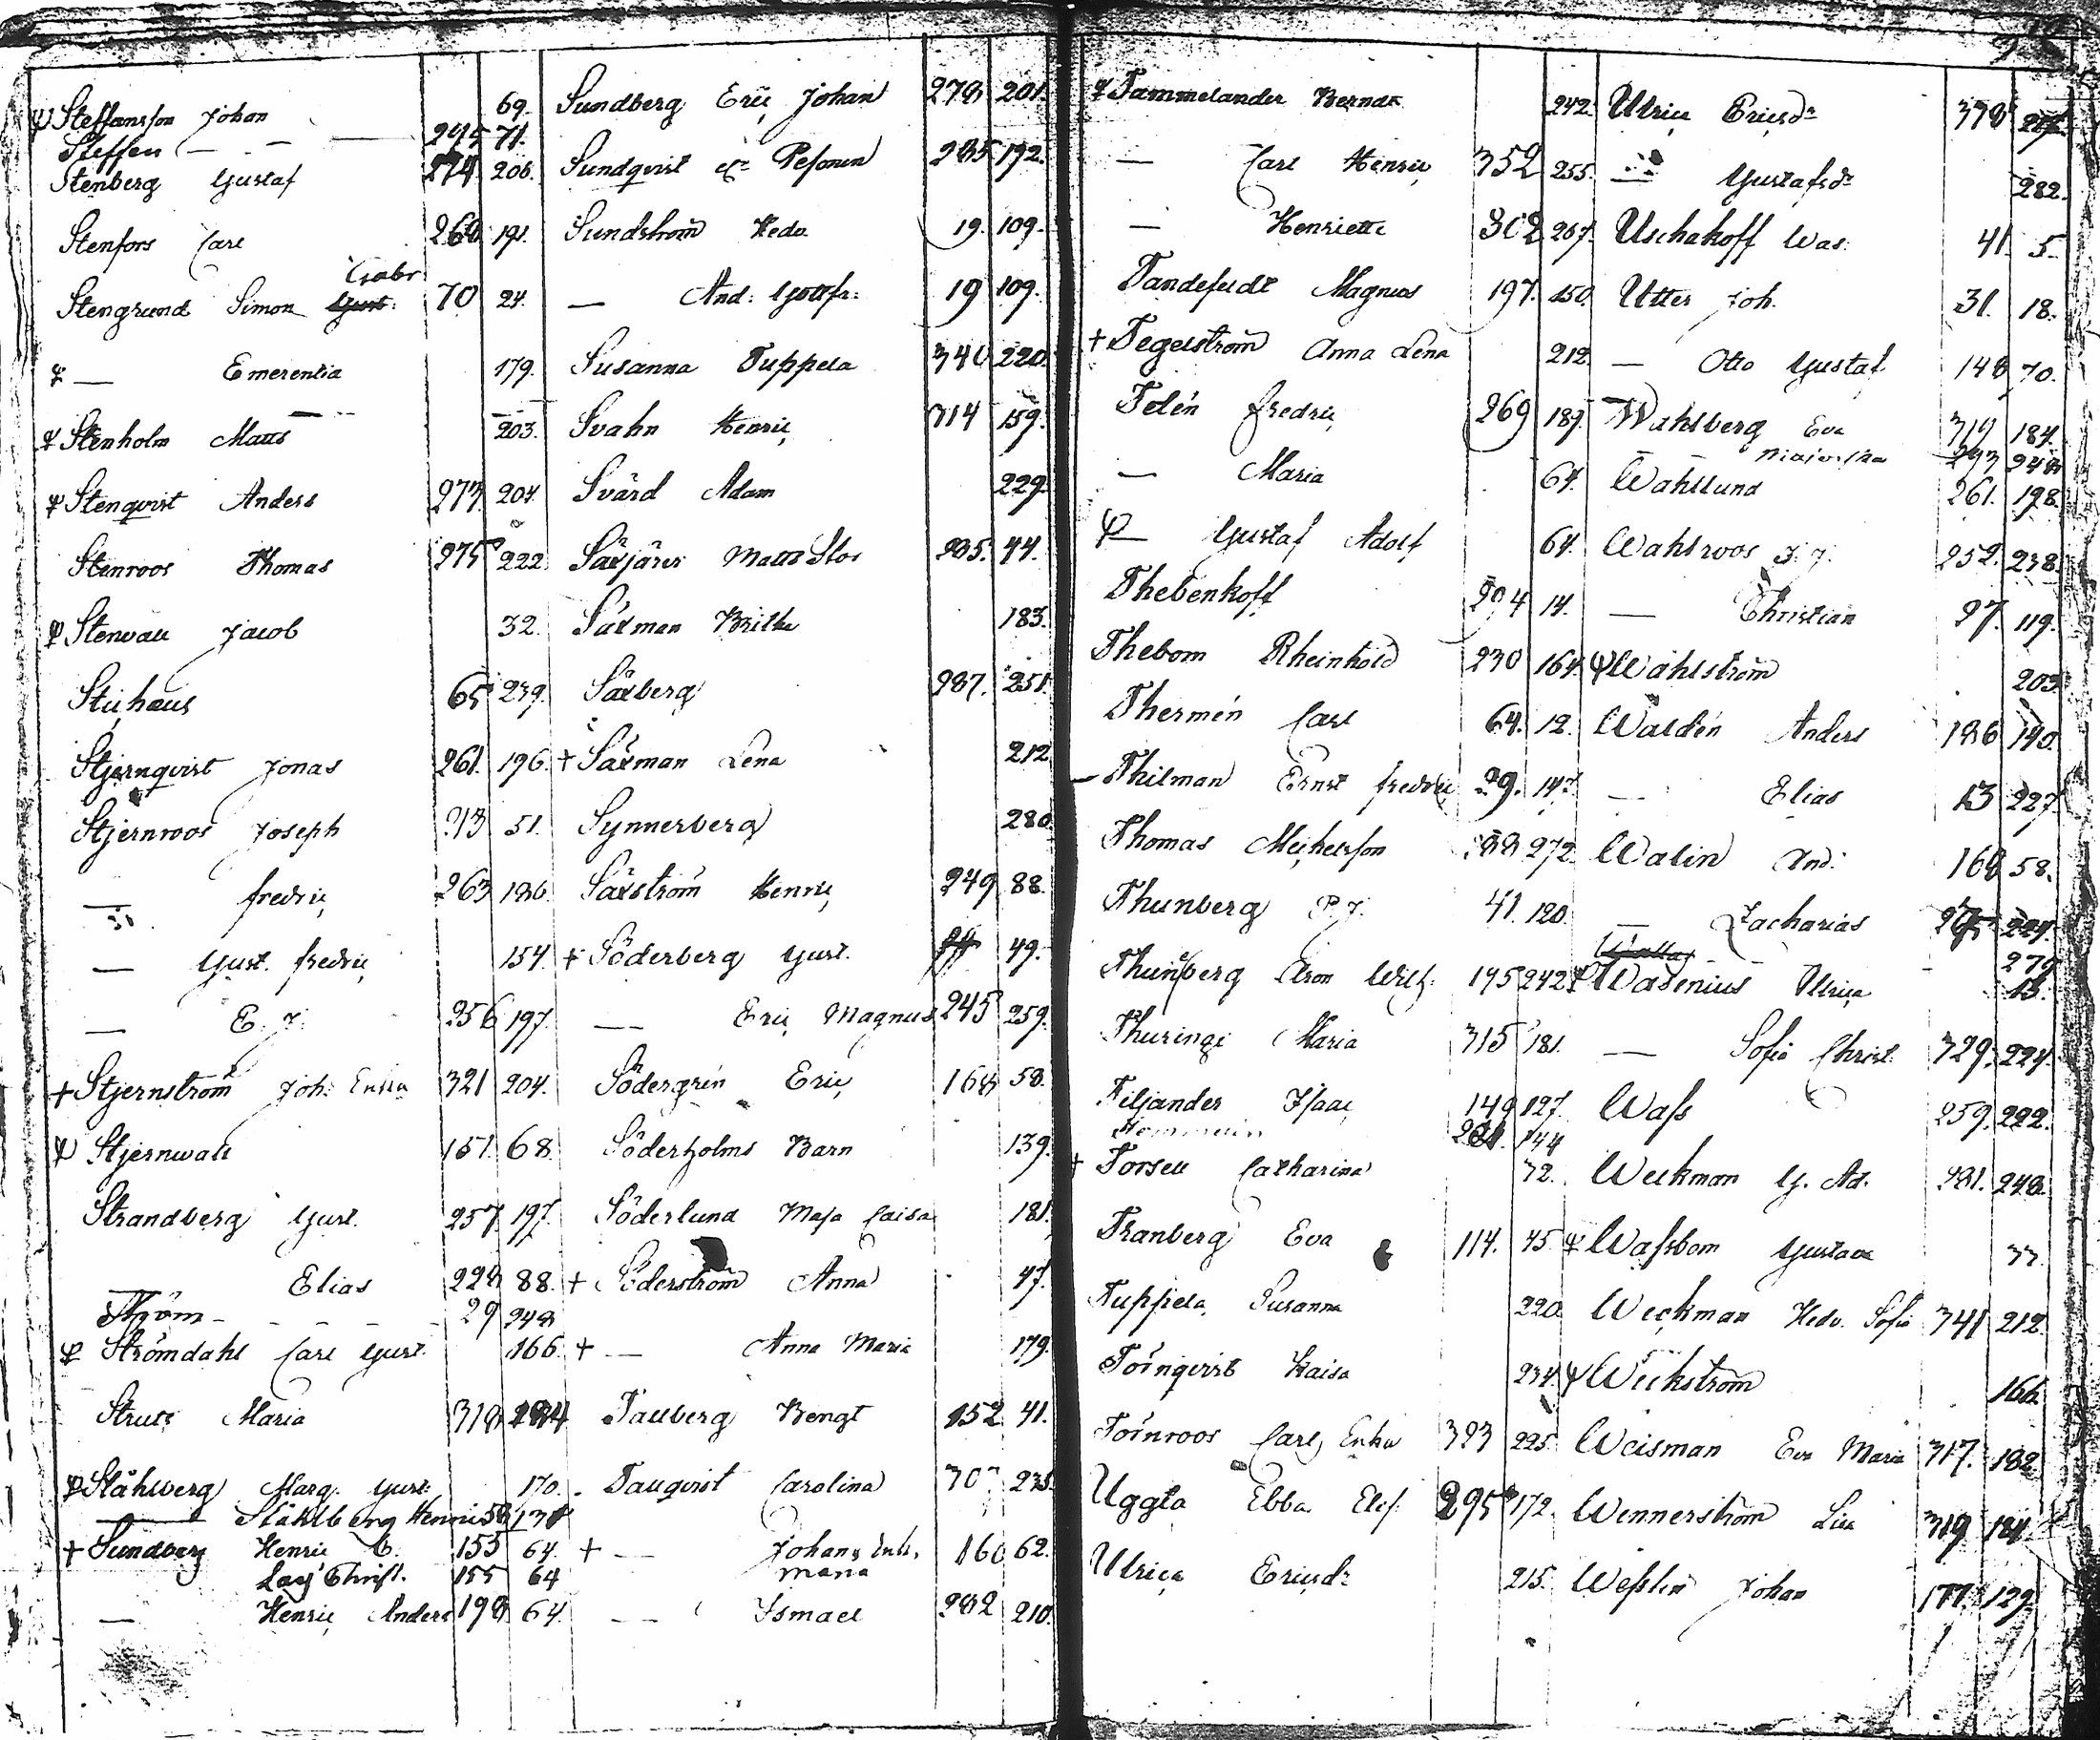 Steffansson Johan 69.
Steffen — — — 295 71.
Stenberg Gustaf 274. 206.
Stenfors Carl 260 191.
Gabr
Stengrund Simon Gust. 70 24.
— Emerentia 179.
Stenholm Matts 203.
Stenqvist Anders 273 204.
Stenroos Thomas 275 222.
Stenvall Jacob 32.
65 239.
Stjernqvist Jonas 261. 196.
Stjernroos Joseph 213 51.
— Fredric 263 186.
— Gust. Fredric 154.
— E. J. 256 197.
+ Stjernström Joh: Enka 321 204.
Stjernvall 151. 68.
Strandberg Gust. 257 197.
— Elias 228 88.
Ström - - - - 29 248
Strömdahl Carl Gust. 166.
Maria 318
Ståhlberg Marg. Gust. 170.
Ståhlberg Henric 58 138
+ Sundberg Henric C. 155 64.
Christ. 155 64
— Henric Anders 198 64.
Sundberg Eric Johan 278 201.
Sundqvist Pesonen 285 192.
Sundström Hedv. 19. 109.
— And: Gottfr: 19 109.
Susanna Tuppela 340 220.
Svahn Henric 314 159.
Svärd Adam 229.
Säxjärvi Matts Stor 285. 44.
Säxman Britha 183.
Säxberg 287. 251.
+ Säxman Lena 212
Synnerberg 280.
Säxström Henric 249 88.
+ Söderberg Gust. 49.
— Eric Magnus 245 259.
Södergrén Eric 168 58.
Söderholms Barn 139.
Söderlund Maja Caisa 181.
+ Söderström Anna 47.
+ — Anna Maria 179.
Tallberg Bengt 152 41.
Tallqvist Carolina 307 235.
+ — Johans Enk. 160 62.
Maria
— Ismael 282 210.
Tammelander Berndt 242.
— Carl Henric 352 255.
— Henriette 302 267.
Tandefeldt Magnus 197. 150.
+ Tegelström Anna Lena 212.
Telén Fredric 269 189.
— Maria 64.
— Gustaf Adolf 64.
Thebenkoff 204 14.
Thebom Rheinhold 230 164.
Thermén Carl 64. 12.
Thilman Ernst Fredric 29. 147
Thomas Michelsson 272.
Thunberg P. J. 41. 120.
Thunberg Aron Wilh: 195 242.
Thuringi Maria 315 181.
Tiljander Isaac 149 127.
144
+ Torsell Catharina 72.
Tranberg Eva 114. 45
Tuppela Susanna 220.
Törnqvist Kaisa 234.
Törnroos Carl, Enka 323 225.
Uggla Ebba Elis. 295 172.
Ulrica Ericsdr 215.
Ulrica Ericsdr 378
— Gustafsdr 282.
Uschakoff Was. 41. 5.
Utter Joh. 31. 18.
— Otto Gustaf 148 70.
Wahlberg Eva 319 184.
248
Wahllund 261. 198.
Wahlroos J. J. 252. 238.
— Christian 27. 119.
Wahlström 203
Waldén Anders 186 140.
— Elias 13 227.
Walin And. 168 58.
— Zacharias
279
Walenius Ulrica 13.
— Sofia Christ. 329. 224.
Wass 259. 222.
Weckman G. Ad. 281. 248.
Wassbom Gustava 33.
Weckman Hedv. Sofia 341 212.
Weckström 166.
Weisman Eva Maria 317. 182.
Wennerström Lisa 319 184.
Wesslin Johan 177. 129.